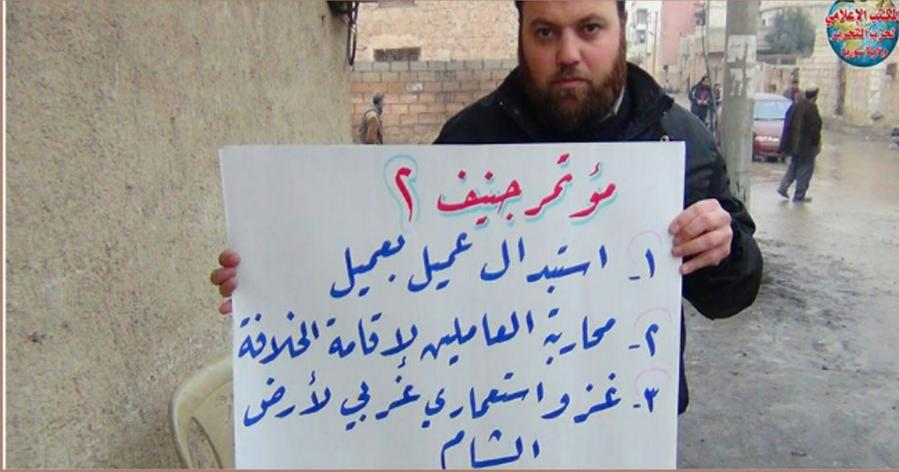 المكتب الإعلامي
لحزب التحرير
ولاية سوريا
مؤتمر جنيف ٢
١- استبدال عميل بعميل
٢- محاربة العاملين لإقامة الخلافة
٣- غزو استعماري غربي لأرض
الشام